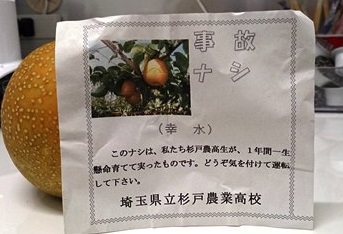 事故
ナシ
(幸水)
このナシは、私たち杉戸農高生が、1年間一生
懸命育てて実ったものです。どうぞ気を付けて運転
して下さい。
埼玉県立杉戸農業高校